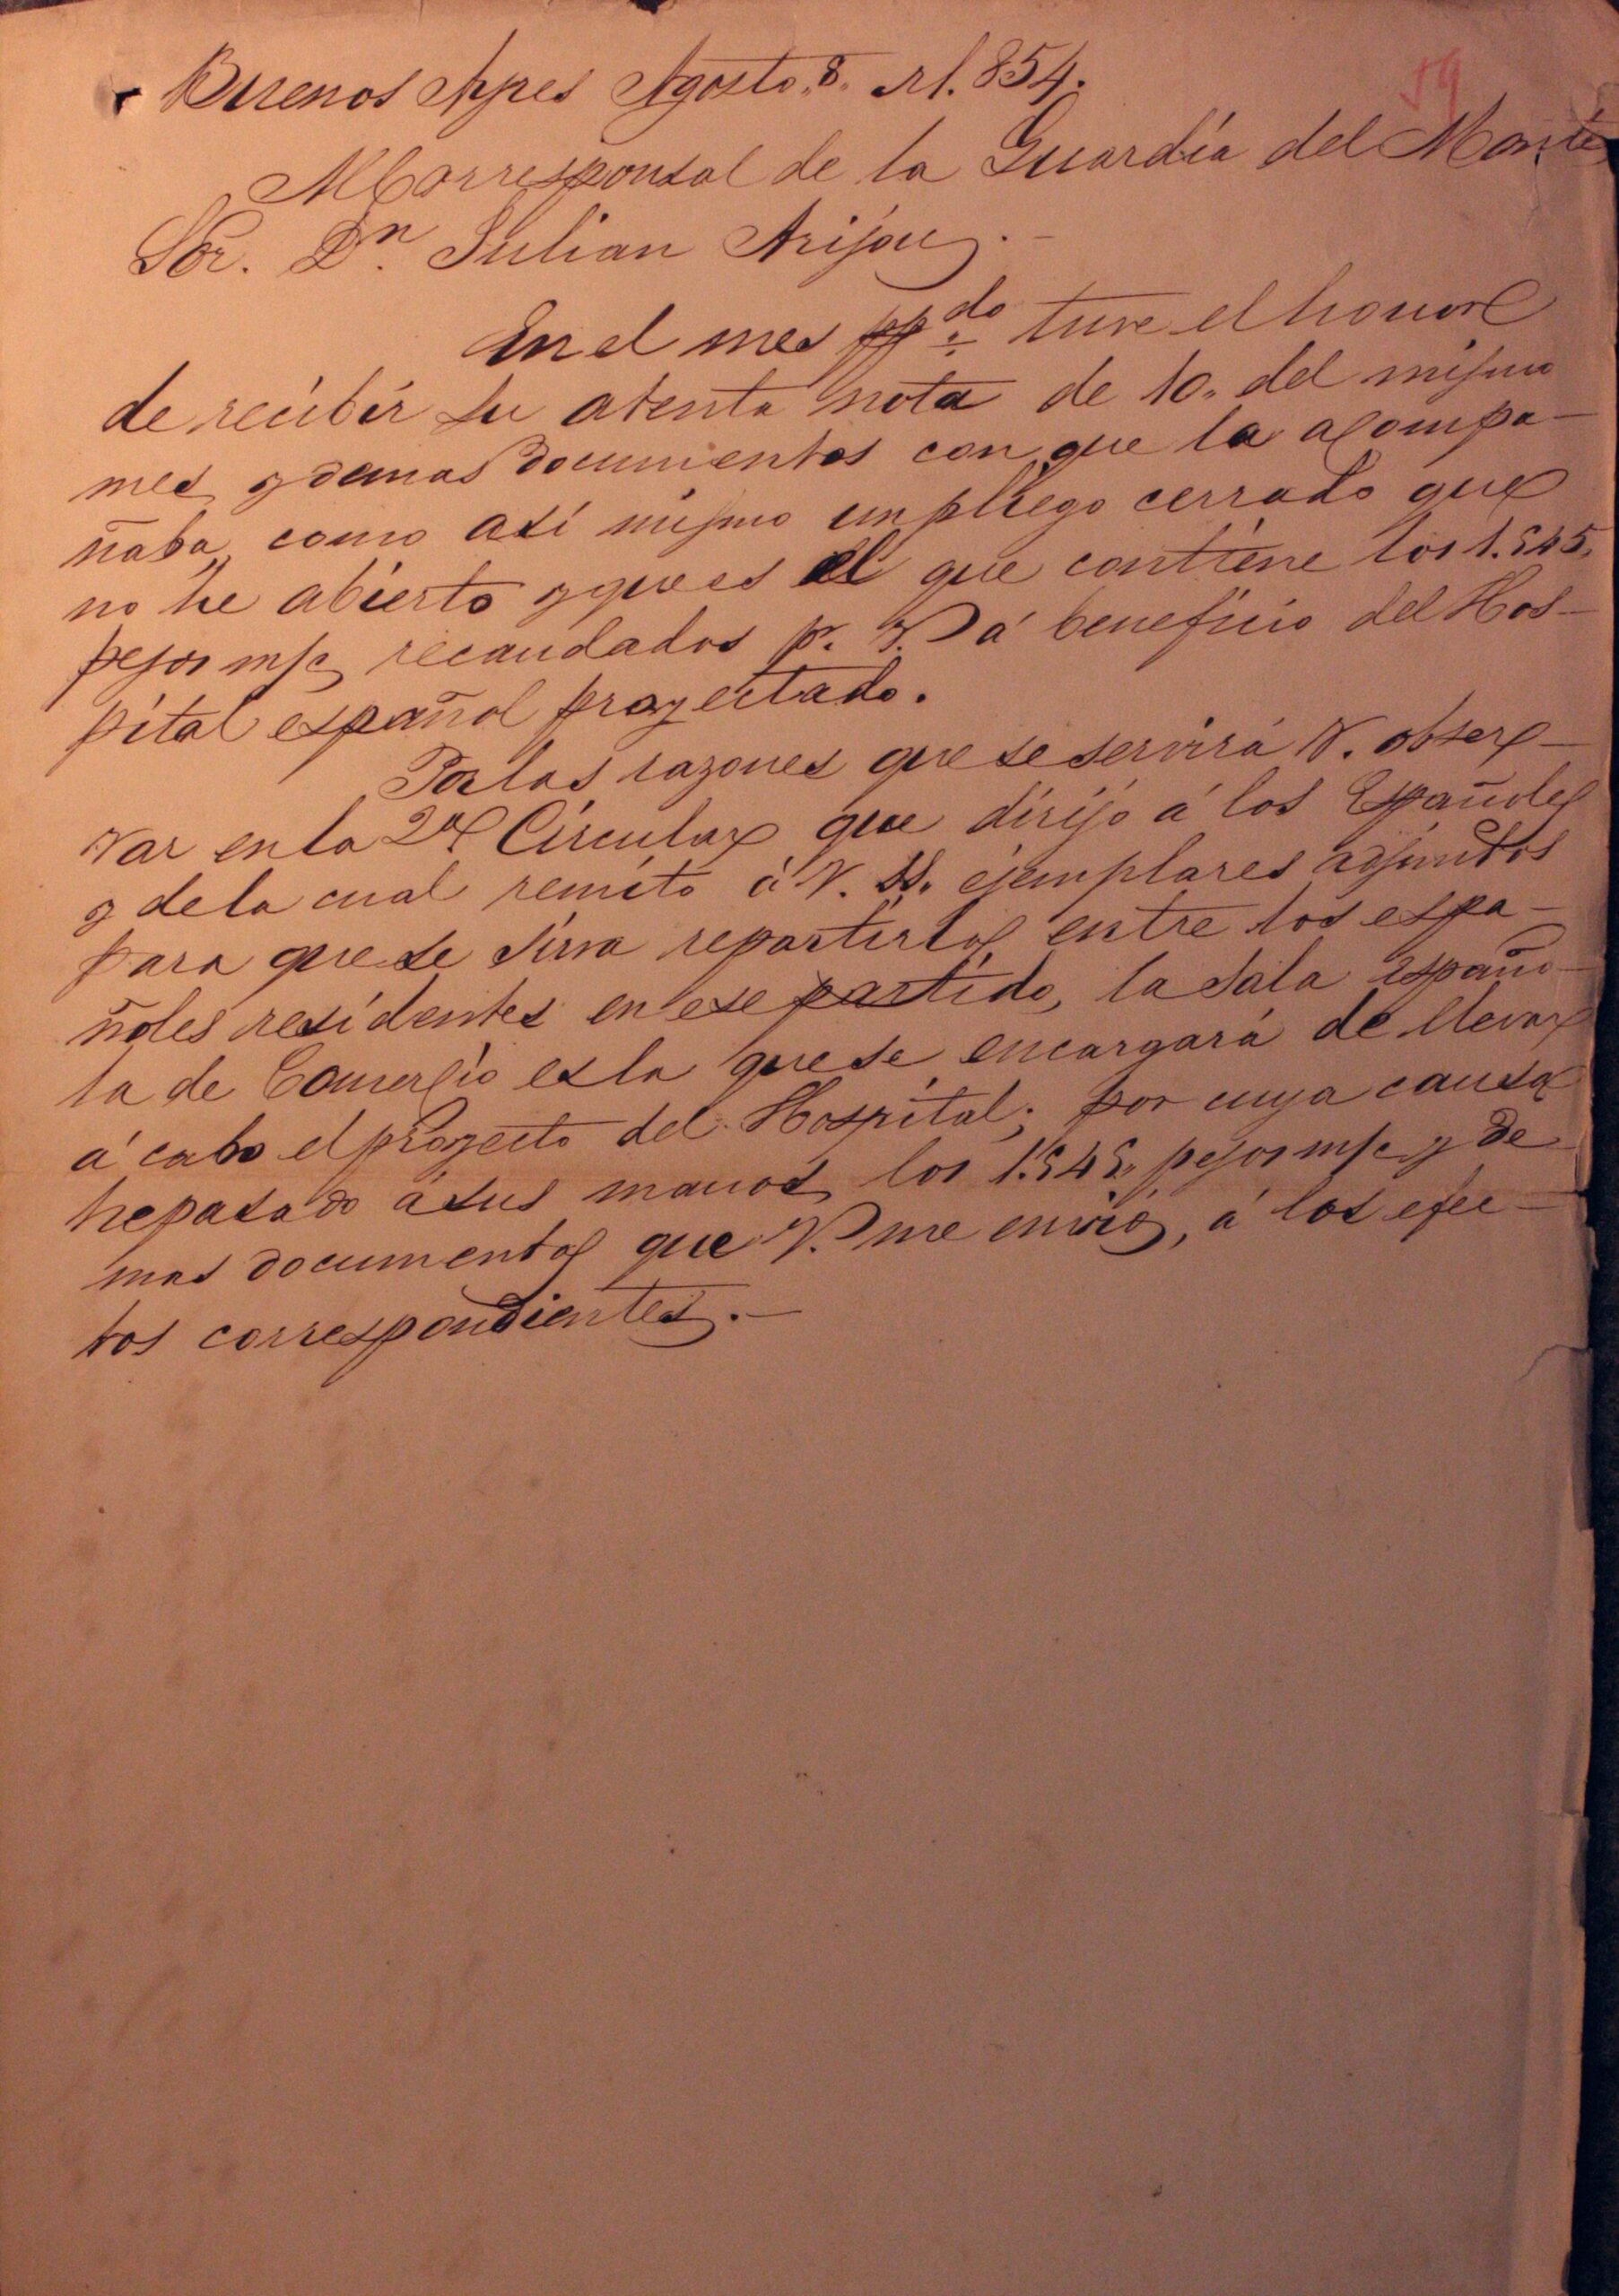 59
Buenos Ayres Agosto 8. „ /1.854.
Al Corresponsal de la Guardia del Monte
Sor. Dn. Julian Arijou. –
En el mes ppdo tuve el honor
de recibir su atenta nota de 10„ del mismo
mes y demas documentos con que la acompa-
ñaba, como asi mismo un pliego cerrado que
no he abierto y que es el que contiene los 1.545„
pesos m/c recaudados pr. V. á beneficio del Hos-
pital español proyectado.
Por las razones que se servirá V. obser-
var en la 2a Circular que dirijo á los Españoles
y de la cual remito á V. ejemplares adjuntos
para que se sirva repartirlos entre los espa-
ñoles residentes en ese partido, la Sala españo-
la de Comercio es la que se encargará de llevar
á cabo el proyecto del Hospital; por cuya causa
he pasado á sus manos los 1.545„ pesos m/c y de
mas documentos que V. me envió, á los efec-
tos correspondientes. –